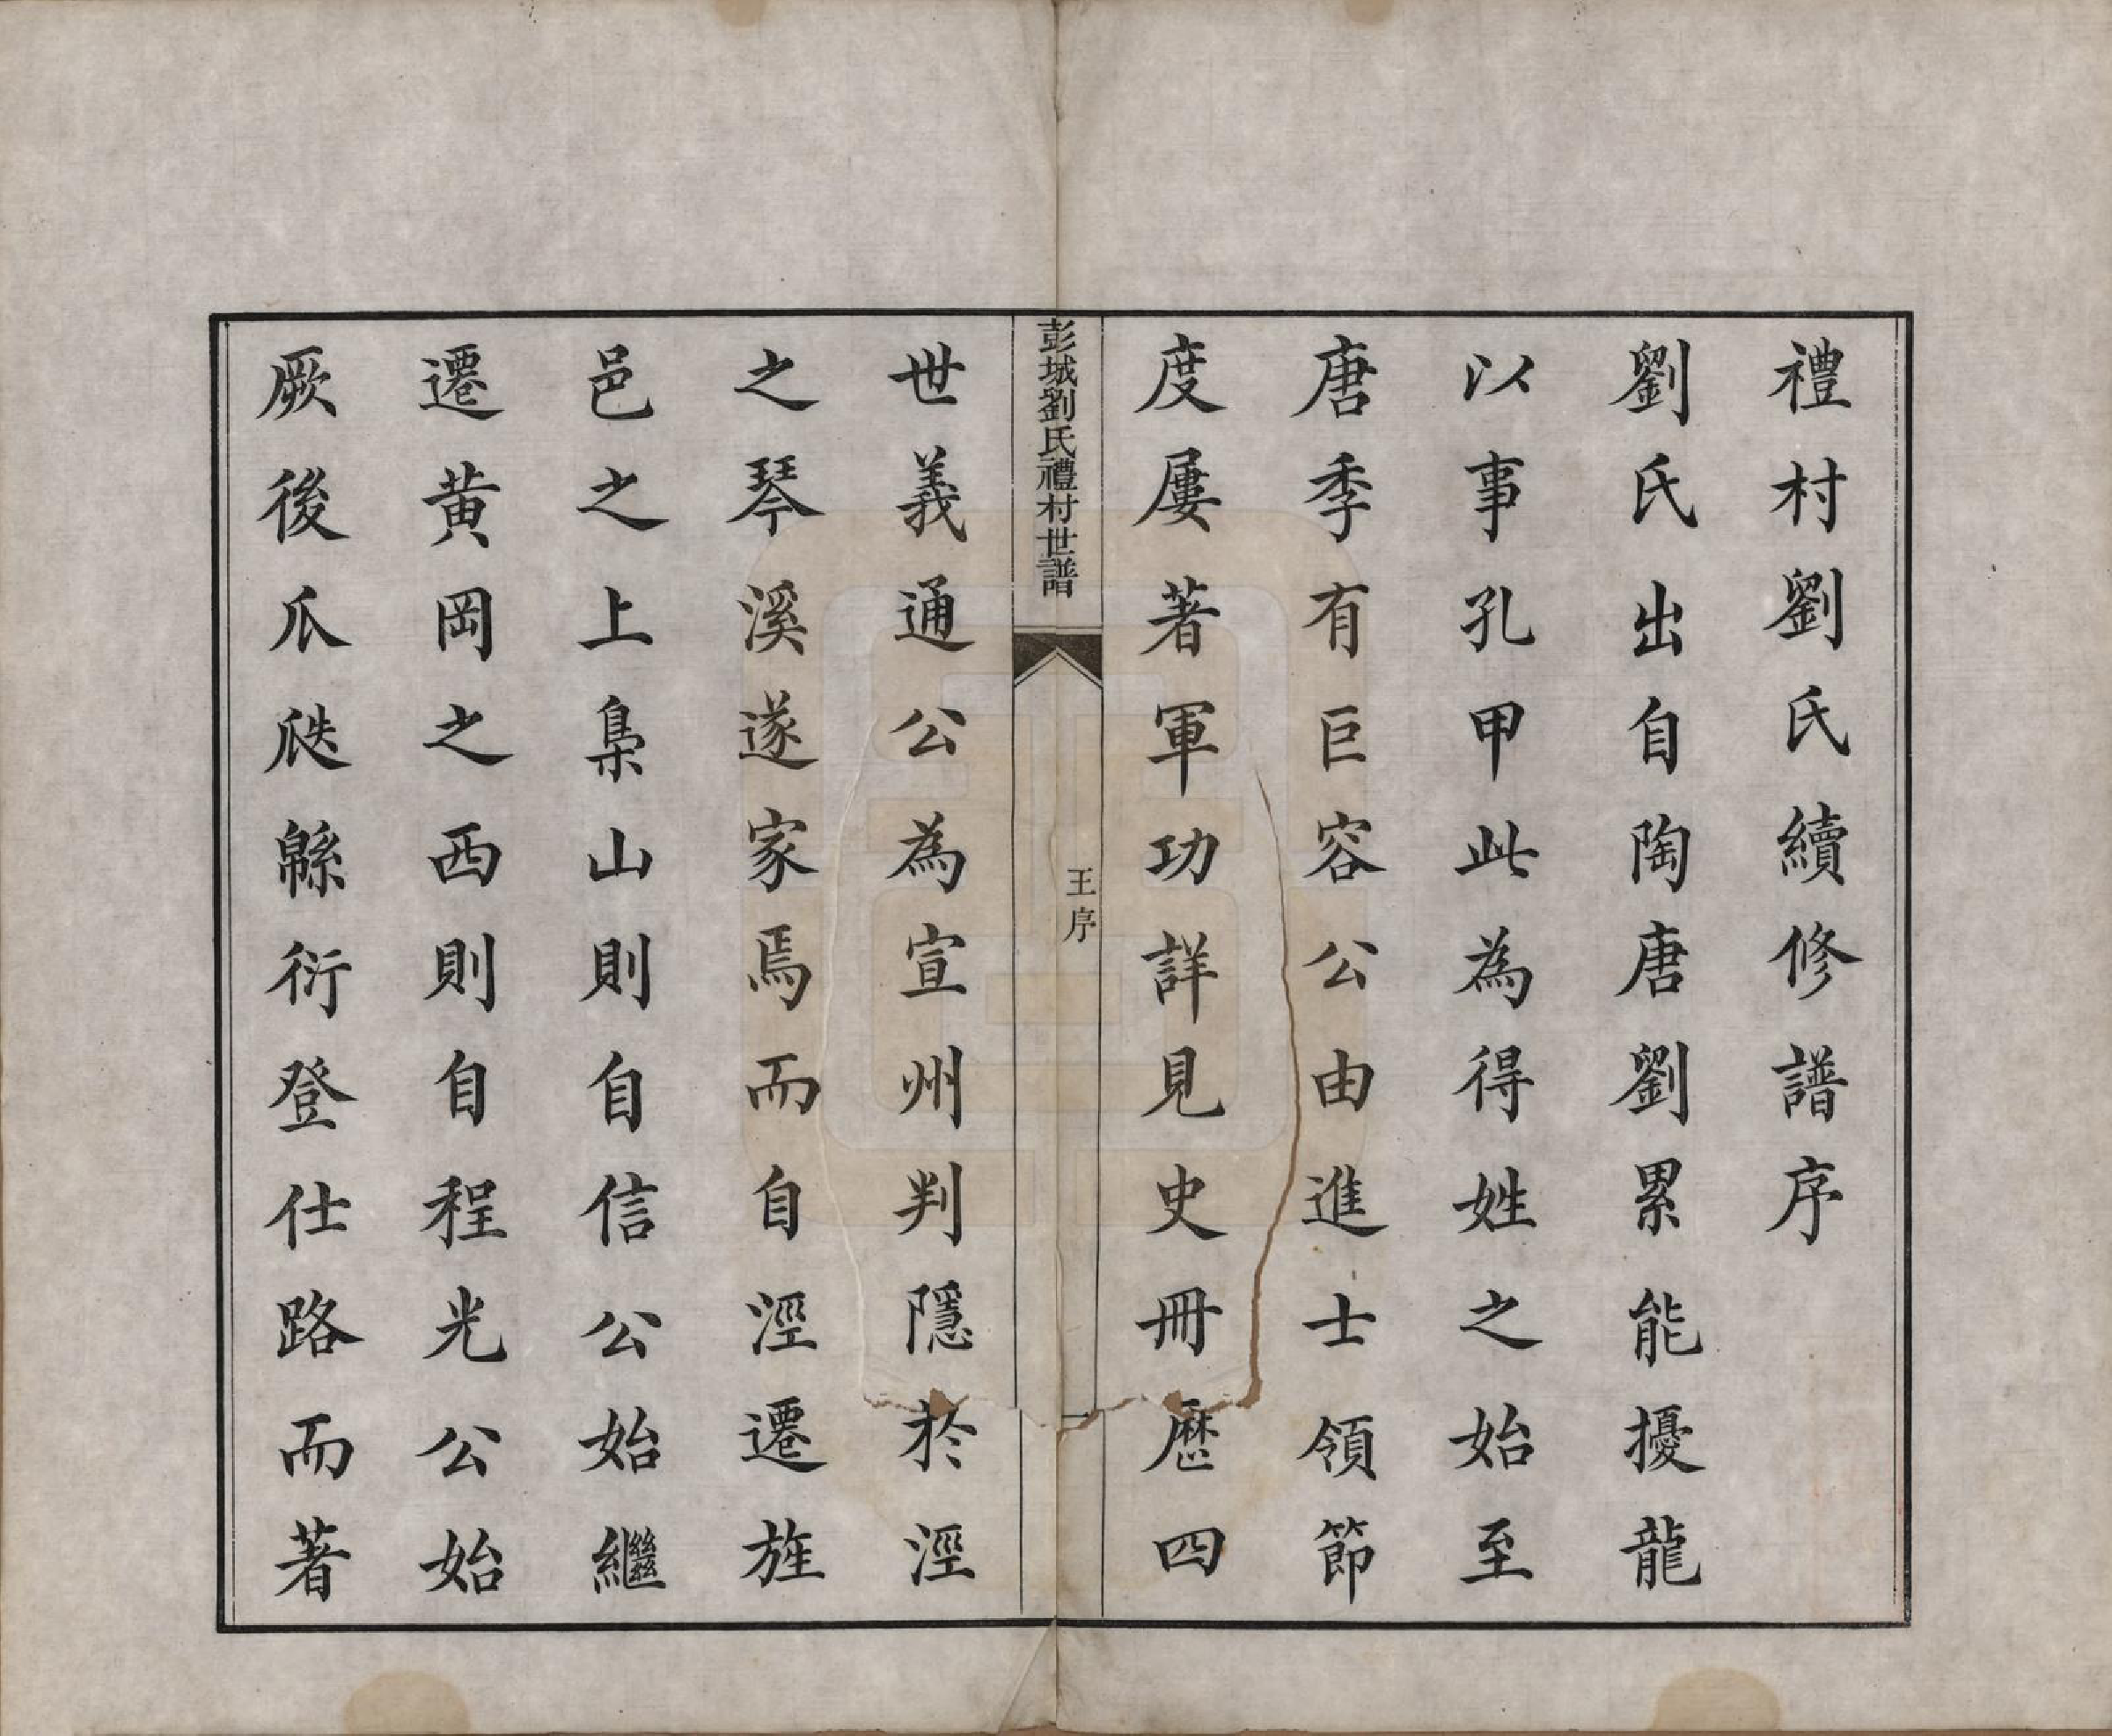 禮村劉氏續修譜序
劉氏出自陶唐劉累能擾龍
以事孔甲此為得姓之始至
唐季有巨容公由進士領節
度屢著軍功詳見史冊歷四
彭城劉氏禮村世譜
王序
一
世義通公為宣州判隱於涇
之琴溪遂家焉而自涇遷旌
邑之上梟山則自信公始繼
遷黄岡之西則自程光公始
厥後瓜瓞緜衍登仕路而著